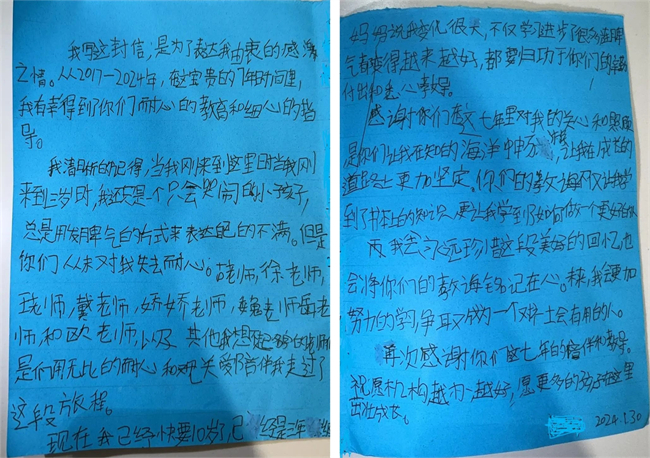 我写这封信，是为了表达我由衷的感激
之情。从2017-2024年，在这宝贵的7年时间里，
我有幸得到了你们耐心的教育和细心的指
导。
我清晰的记得，当我刚来到这里时当我刚
来到三岁时，我还只是一个只会哭闹的小孩子，
总是用发脾气的方式来表达自己的不满。但是
你们从未对我失去耐心。老师，徐老师，
老师，戴老师，娇娇老师，魏老师岳老
师和欧老师，以及其他我想不起名字的老师
是你们用无比的耐心和关爱陪伴我走过了
这段旅程。
现在我已经快要10岁了，已经是
妈妈说我变化很大，不仅学习进步了很多连脾
气都变得越来越好，都要归功于你们的辛勤
付出和悉心教导。
感谢你们这七年里对我的关心和照顾
是你们让我在知识的海洋中，让我在成长的
道路上更加坚定。你们的教诲不仅让我学
到了书本上的知识，更让我学到了如何做一个更好的人
我会永远珍惜这段美好的回忆也
会将你们的教诲铭记在心。未来，我会更加
努力的学习，争取成为一个对社会有用的人。
再次感谢你们这七年的陪伴和教导。
祝愿机构越办越好，愿更多的孩子在这里
茁壮成长。
2024.1.30